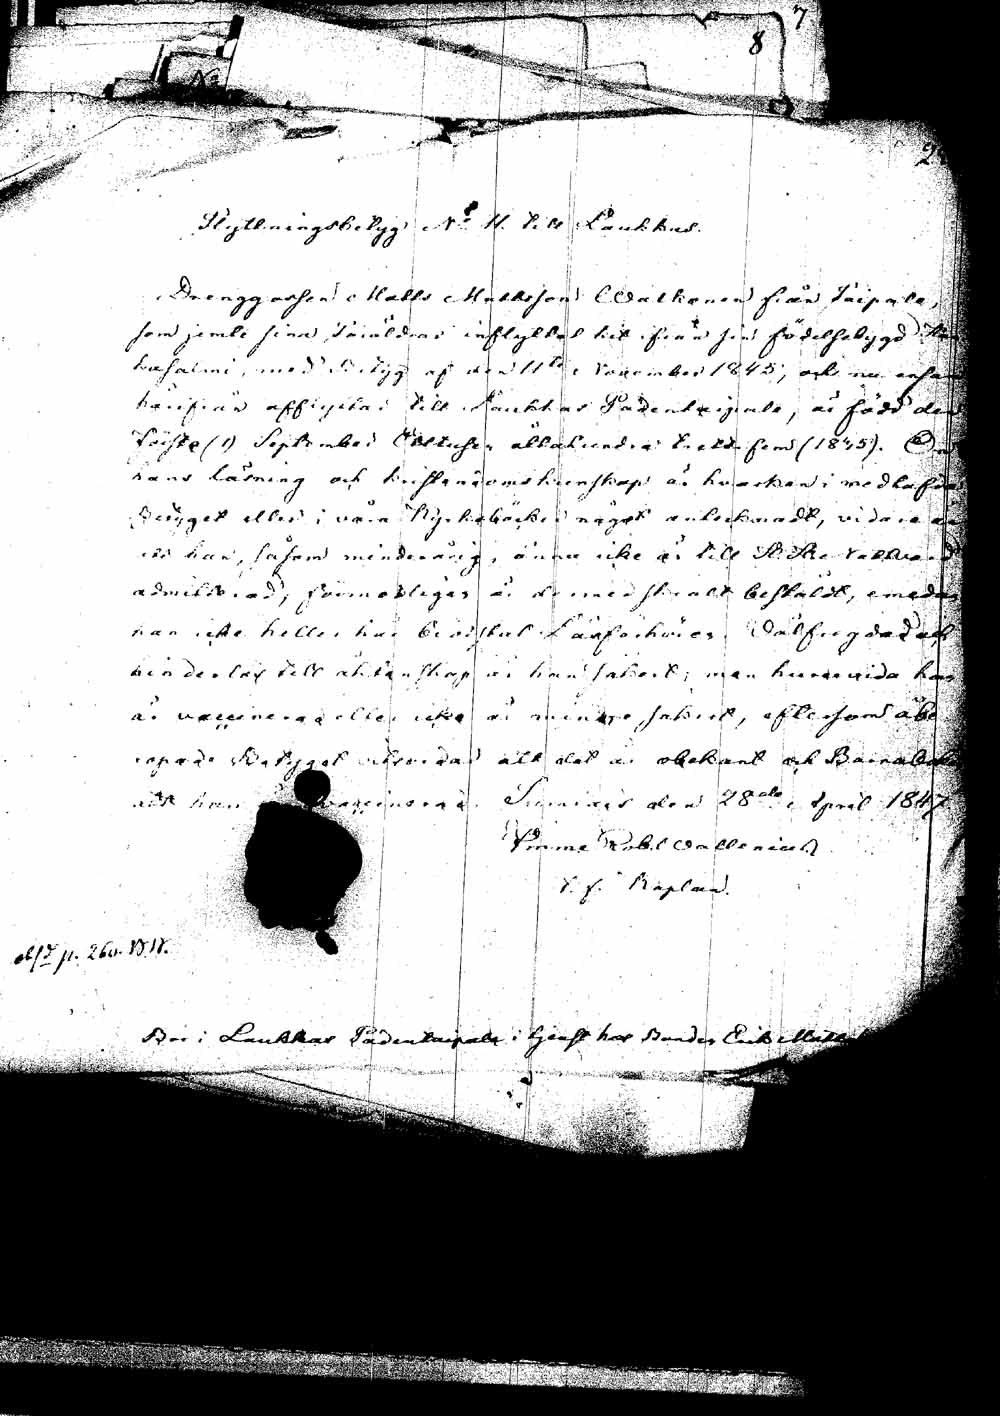 7
8
No
2
Flyttningsbetyg No 11. till Laukkas.
Drenggossen Matts Mattsson Watkanen från Taipale,
som jemte sina föräldrar inflyttat hit från sin födelsebygd
med betyg af den 11te November 1845, och nu ensam
härifrån afflyttar till Laukkas Padentaipale, är född den
förste (1) September Ettusen åttahundra trettifem (1835). Om
hans läsning och kristendomskunskap är hvarken i medhafda
Betyget eller i våra Kyrkoböcker något antecknadt, vidare än
att han, såsom minderårig, ännu icke är till H. H. Nattvard
admitterad, förmodligen är dermed skralt bestäldt, emedan
han icke heller har bevistat Läsförhörer. Välfrejdad och
hinderlös till äktenskap är han säkert; men huruvida han
är vaccinerad eller icke är mindre säkert, eftersom åbe-
ropade Betyget utvisar att det är obekant och Barnaboken
att han är vaccinerad. Sumiais den 28de April 1847.
Wallenius
v. f. Kaplan.
p. 260.
Bor i Laukkas Padentaipale i tjenst hos Bonden Erik Matts